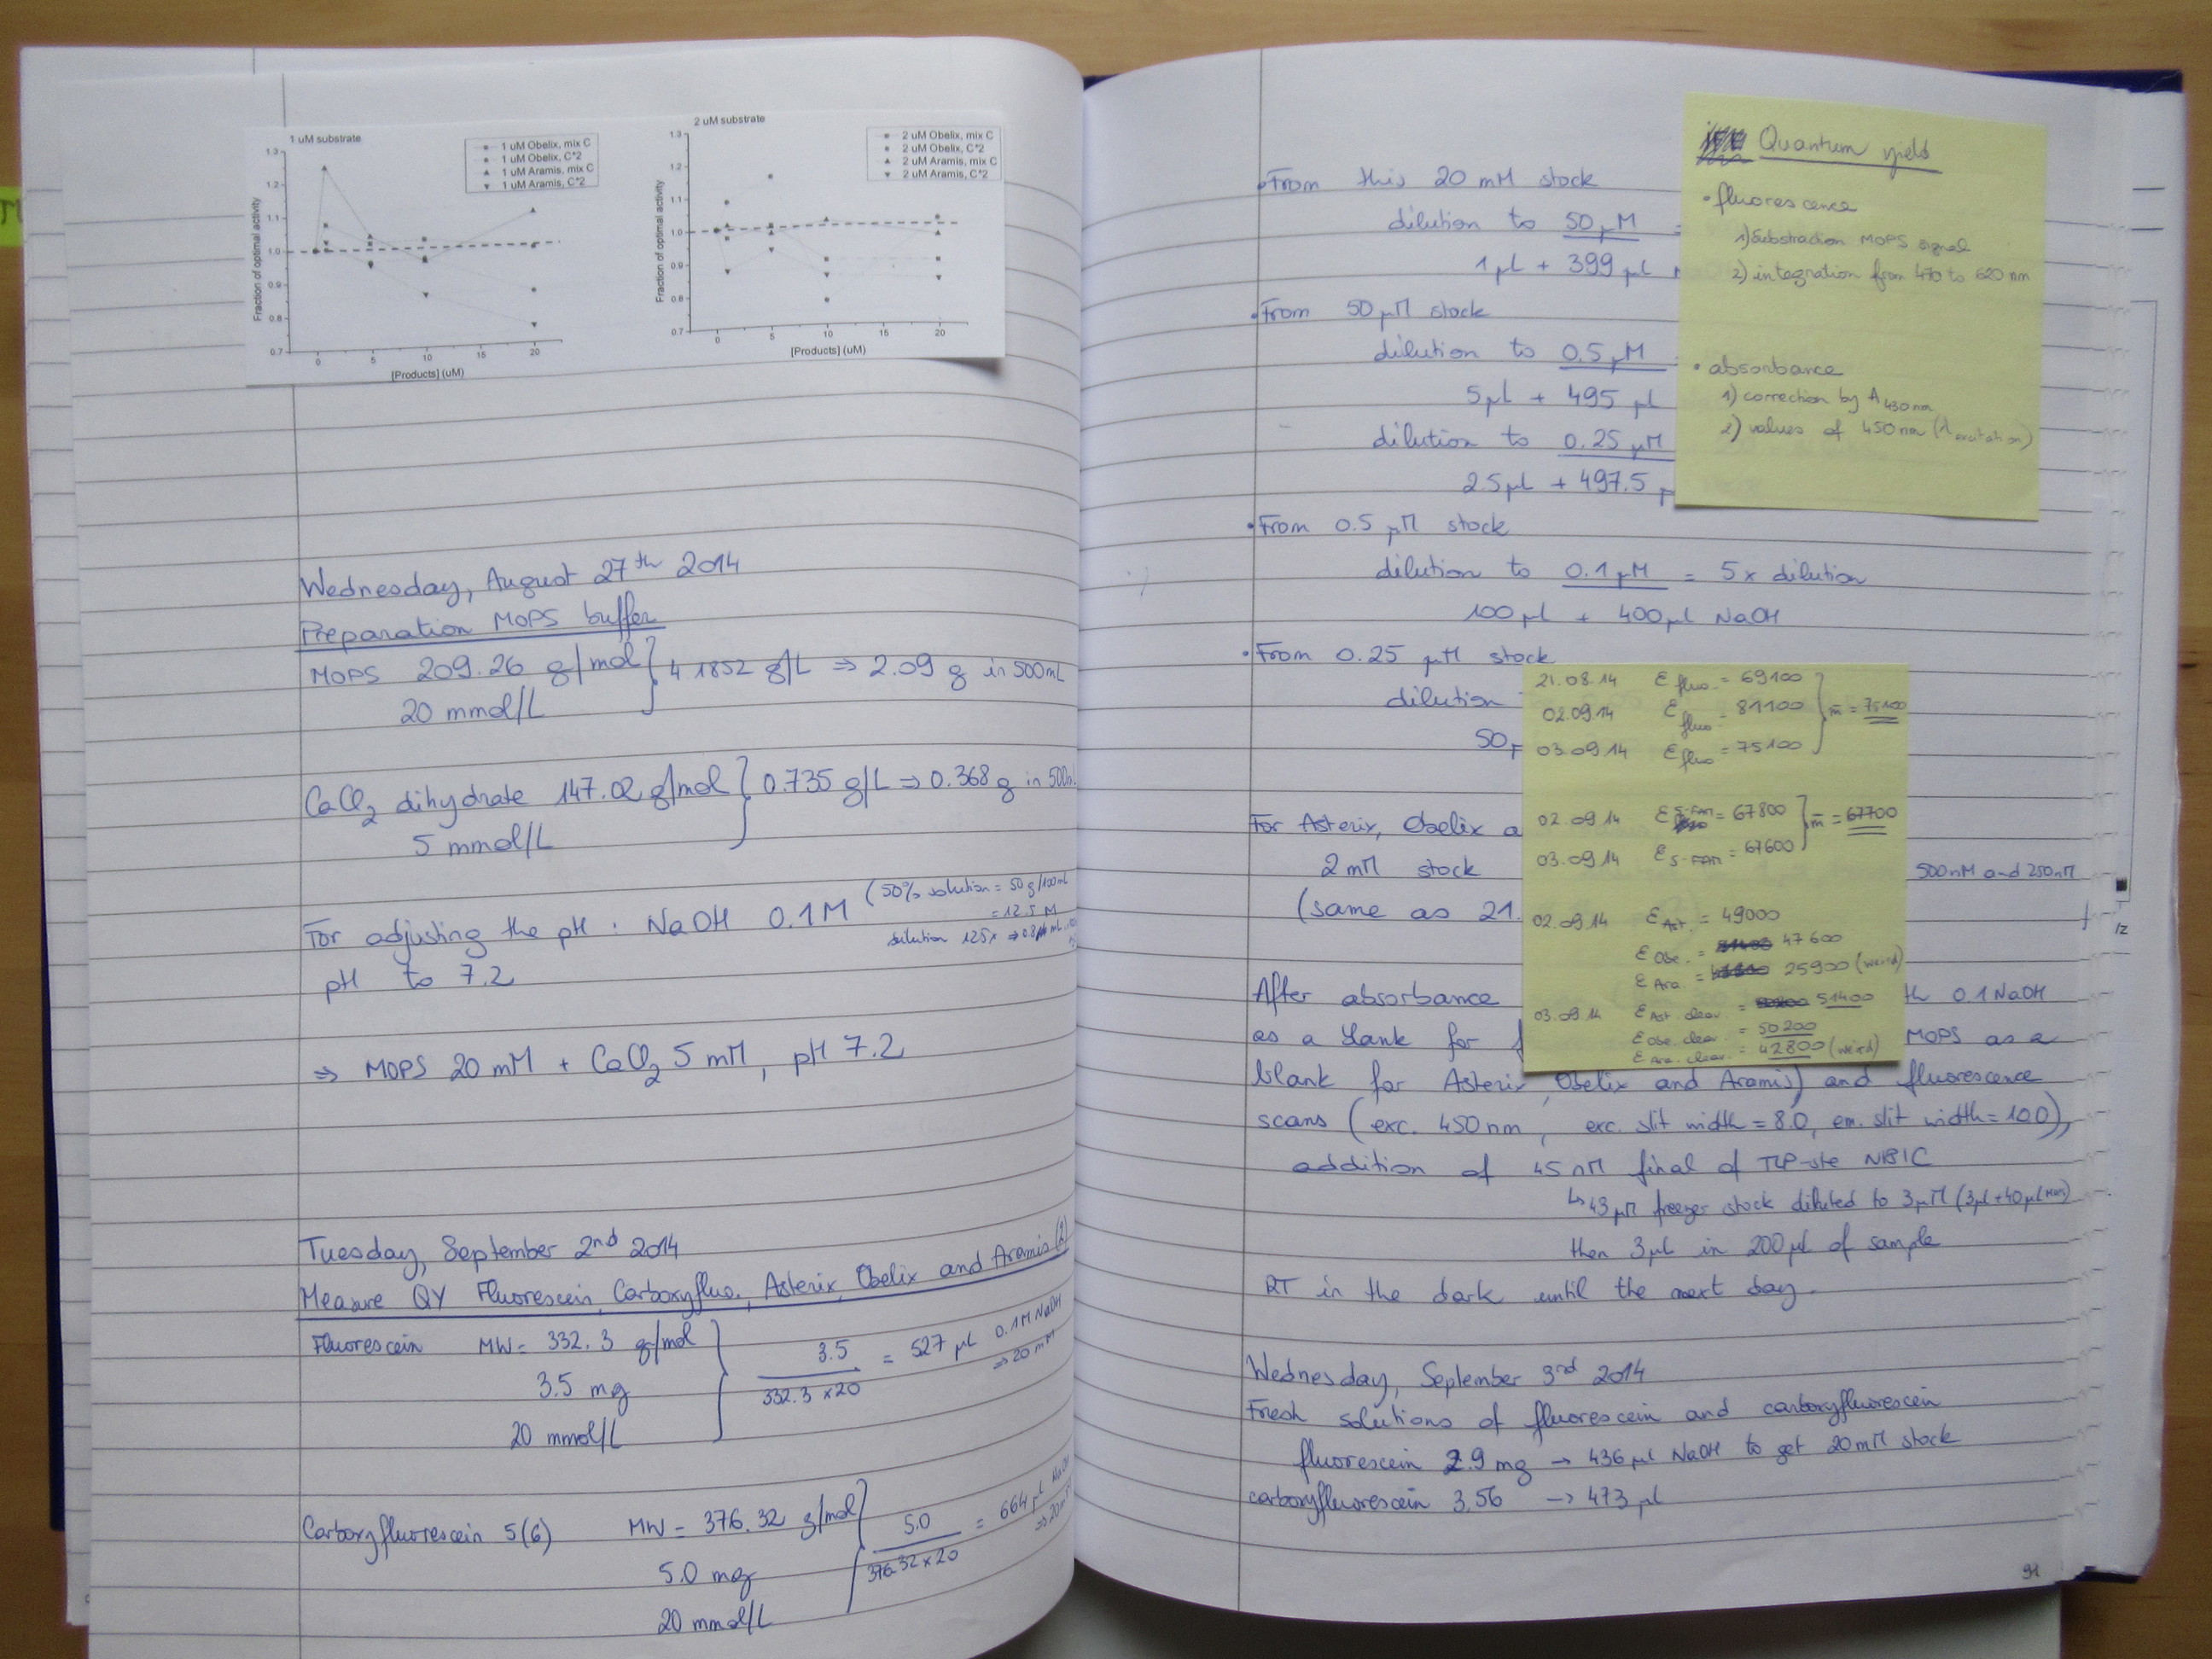 1 uM substrate
1 uM Obelix, mix C
1 uM Obelix, C*2
1 uM Aramis, mix C
1 uM Aramis, C*2
Fraction of optimal activity
1.3
1.2
1.1
1.0
0.9
0.8
0.7
0 5 10 15 20
[Products] (uM)
2 uM substrate
2 uM Obelix, mix C
2 uM Obelix, C*2
2 uM Aramis, mix C
2 uM Aramis, C*2
Fraction of optimal activity
1.3
1.2
1.1
1.0
0.9
0.8
0.7
0 5 10 15 20
[Products] (uM)
Wednesday, August 27th 2014
Preparation MOPS buffer
MOPS 209.26 g/mol } 4.1852 g/L ⇒ 2.09 g in 500mL
20 mmol/L
CaCl2 dihydrate 147.02 g/mol } 0.735 g/L ⇒ 0.368 g in 500mL
5 mmol/L
For adjusting the pH : NaOH 0.1M (50% solution = 50 g/100mL
= 12.5 M
dilution 125x ⇒ 0.8 mL
pH to 7.2
⇒ MOPS 20 mM + CaCl2 5 mM, pH 7.2
Tuesday, September 2nd 2014
Measure QY Fluorescein, Carboxyfluo., Asterix, Obelix and Aramis (2)
Fluorescein MW = 332.3 g/mol
3.5 mg
20 mmol/L
3.5
332.3 x 20
= 527 µL 0.1M NaOH
⇒ 20 mM
Carboxyfluorescein 5(6) MW = 376.32 g/mol
5.0 mg
20 mmol/L
5.0
376.32 x 20
= 664 µl NaOH
⇒ 20 mM
• From this 20 mM stock
dilution to 50 µM =
1µL + 399 µL
• From 50 µM stock
dilution to 0.5 µM
5µL + 495 µL
dilution to 0.25 µM
2.5µL + 497.5
• From 0.5 µM stock
dilution to 0.1 µM = 5x dilution
100 µL + 400µL NaOH
• From 0.25 µM stock
dilution
50
For Asterix, Obelix a
2 mM stock 500nM and 250nM
(same as 21.
After absorbance th 0.1 NaOH
as a blank for MOPS as a
blank for Asterix, Obelix and Aramis) and fluorescence
scans (exc. 450 nm, exc. slit width = 8.0, em. slit width = 10.0),
addition of 45 nM final of TLP-ste NBIC
↳ 43 µM freezer stock diluted to 3µM (3µL + 40µL MOPS)
then 3µL in 200 µL of sample
RT in the dark until the next day.
Wednesday, September 3rd 2014
Fresh solutions of fluorescein and carboxyfluorescein
fluorescein 2.9 mg → 436 µL NaOH to get 20 mM stock
carboxyfluorescein 3.56 → 473 µL
91
Quantum yield
• fluorescence
1) Substraction MOPS signal
2) integration from 470 to 620 nm
• absorbance
1) correction by A 430 nm
2) values of 450 nm (λ excitation)
21.08.14 ε fluo. = 69100
02.09.14 ε fluo = 81100 } m̄ = 75100
03.09.14 ε fluo = 75100
02.09.14 ε 5-FAM = 67800 } m̄ = 67700
03.09.14 ε 5-FAM = 67600
02.09.14 ε Ast. = 49000
ε Obe. = 47600
ε Ara. = 25900 (weird)
03.09.14 ε Ast. cleav. = 51400
ε Obe. cleav. = 50200
ε Ara. cleav. = 42800 (weird)